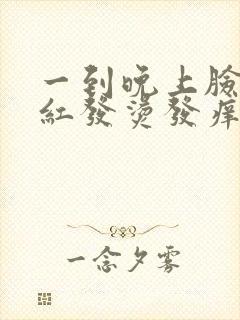 一到晚上臉
紅發燙發痒
一念夕雾